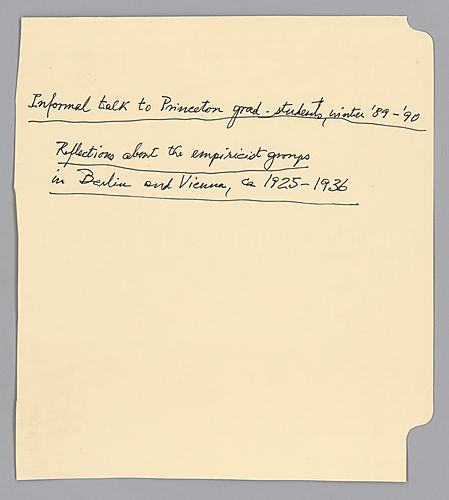 Informal talk to Princeton grad. students, winter '89-'90
Reflections about the empiricist groups
in Berlin and Vienna, ca 1925-1936